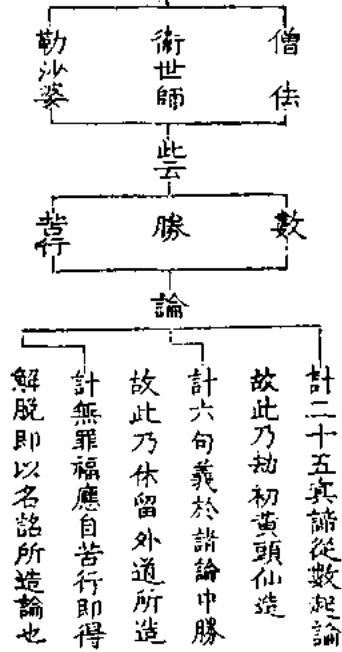 僧佉
衛世師
勒沙婆
此云
數
勝
苦行
論
計二十五真諦從數起論
故此乃劫初黃頭仙造
計六句義於諸論中勝
故此乃休留外道所造
計無罪福應自苦行即得
解脫即以名諸所造論也